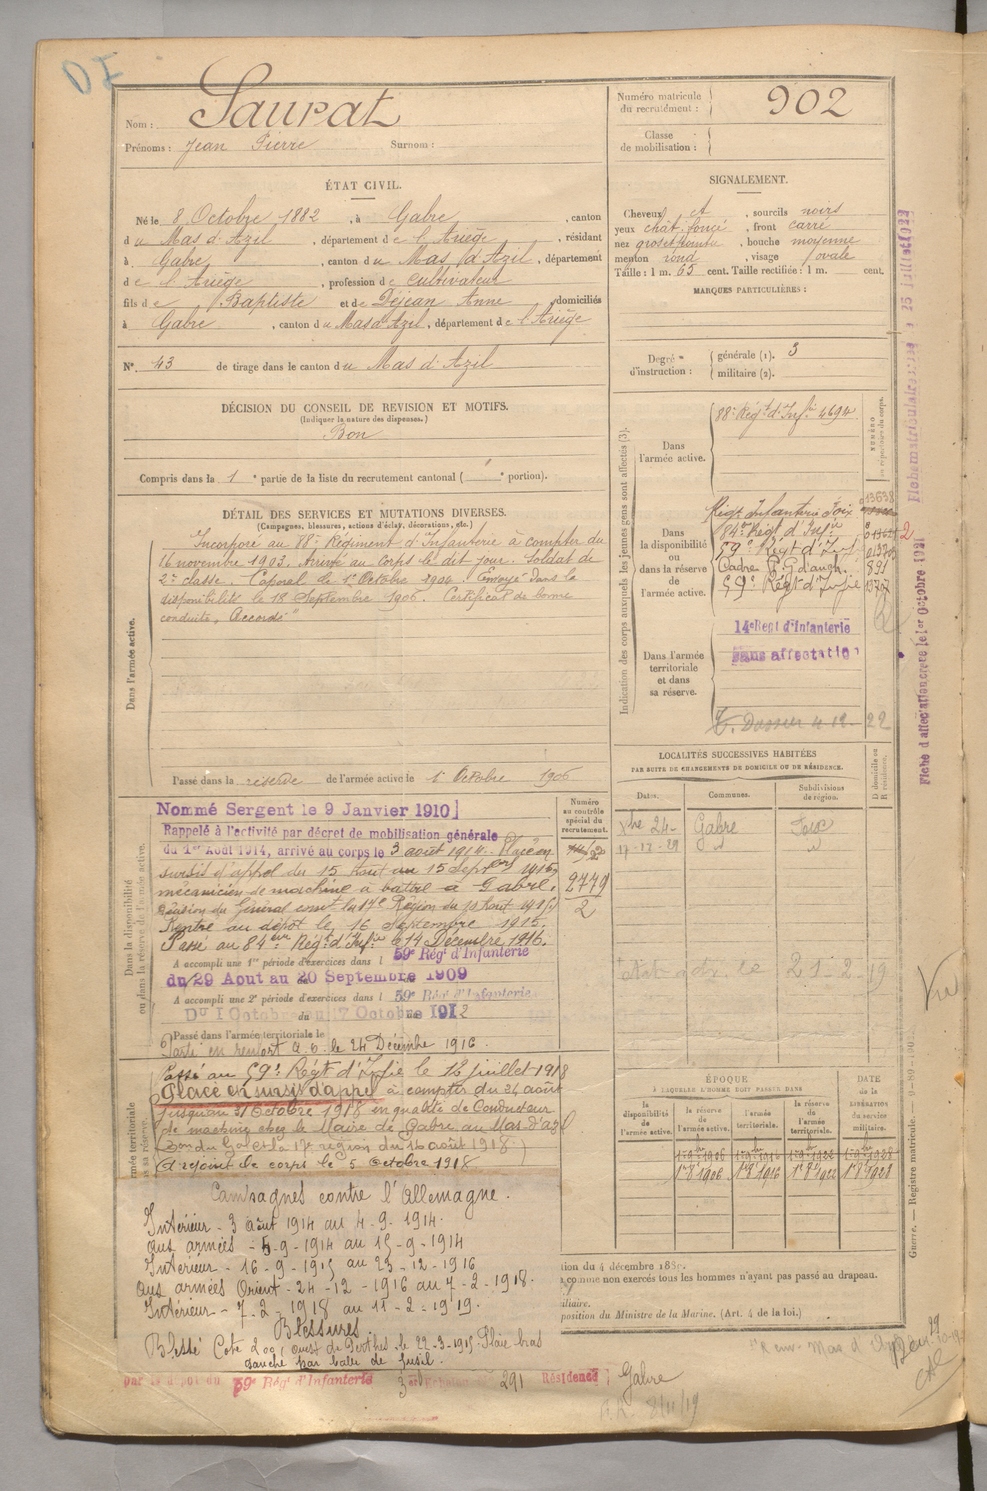 DI
Nom : Saurat
Prénoms : Jean Pierre Surnom :
Numéro matricule du recrutement : 902
Classe de mobilisation :
ÉTAT CIVIL.
Né le 8 Octobre 1882, à Gabre, canton
du Mas d'Azil, département de l'Ariège, résidant
à Gabre, canton du Mas d'Azil, département
de l'Ariège, profession de cultivateur
fils de Baptiste et de Dejean Anne, domiciliés
à Gabre, canton du Mas d'Azil, département de l'Ariège
N° 43 de tirage dans le canton du Mas d'Azil
SIGNALEMENT.
Cheveux et, sourcils noirs
yeux chât. foncé, front carré
nez, bouche moyenne
menton rond, visage ovale
Taille : 1 m. 65 cent. Taille rectifiée : 1 m. cent.
MARQUES PARTICULIÈRES :
Degré d'instruction : générale (1). 3
militaire (2).
DÉCISION DU CONSEIL DE REVISION ET MOTIFS.
(Indiquer la nature des dispenses.)
Bon
Compris dans la 1e partie de la liste du recrutement cantonal ( " portion).
DÉTAIL DES SERVICES ET MUTATIONS DIVERSES.
(Campagnes, blessures, actions d'éclat, décorations, etc.)
Dans l'armée active.
Incorporé au 88e Régiment d'Infanterie à compter du
16 novembre 1903. Arrivé au corps le dit jour. Soldat de
2e classe. Caporal le 1er Octobre 1904. Envoyé dans la
disponibilité le 18 Septembre 1906. Certificat de bonne
conduite "Accordé"
Passé dans la réserve de l'armée active le 1er Octobre 1906
Dans la disponibilité ou dans la réserve de l'armée active.
Nommé Sergent le 9 Janvier 1910
Rappelé à l'activité par décret de mobilisation générale
du 1er Août 1914, arrivé au corps le 3 août 1914. Placé en
sursis d'appel du 15 Août au 15 Septbre 1915
mécanicien de machine à battre à Gabre.
Décision du Général comt la 17e Région du 10 Août 1915
Rentré au dépôt le 16 Septembre 1915.
Passé au 84eme Régt d'Infie le 14 Décembre 1916.
A accompli une 1re période d'exercices dans l 59e Régt d'Infanterie
du 29 Aout au 20 Septembre 1909
A accompli une 2e période d'exercices dans l 59e Régt d'Infanterie
Du 1 Octobre au 17 Octobre 1912
Passé dans l'armée territoriale le
Parti en renfort A.O. le 24 Décembre 1916
Passé au 59e Régt d'Infie le 12 juillet 1918
Placé en sursis d'appel à compter du 24 août
jusqu'au 31 Octobre 1918 en qualité de Conducteur
de machine chez le Maire de Gabre au Mas-d'Azil
A rejoint le corps le 5 Octobre 1918
Campagnes contre l'Allemagne.
Intérieur - 3 août 1914 au 4-9-1914.
aux armées - 5-9-1914 au 15-9-1914
Intérieur - 16-9-1915 au 23-12-1916
aux armées Orient - 24-12-1916 au 7-2-1918.
Intérieur - 7-2-1918 au 11-2-1919.
Blessures
Blessé Cote 200 ouest de Perthes le 22-3-1915 Plaie bras
gauche par balle de fusil.
par le dépôt du 59e Régt d'Infanterie 3e Echelon 291 Résidence Gabre
8/11/19
Numéro au contrôle spécial du recrutement.
2779
2
Indication des corps auxquels les jeunes gens sont affectés (3).
NUMÉRO au répertoire du corps.
Dans l'armée active.
88e Régt d'Infie 4694
Dans la disponibilité ou dans la réserve de l'armée active.
Régt Infanterie Foix 13638
84e Régt d'Infie
59e Régt d'Inf
Cadre 891
59e Régt d'Infie
Dans l'armée territoriale et dans sa réserve.
14e Regt d'Infanterie
Sans affectation
22
LOCALITÉS SUCCESSIVES HABITÉES
PAR SUITE DE CHANGEMENTS DE DOMICILE OU DE RÉSIDENCE.
Dates. Communes. Subdivisions de région. D domicile ou R résidence.
Xbre 24 - Gabre Foix
17-12-29
21-2-19
Vu
ÉPOQUE À LAQUELLE L'HOMME DOIT PASSER DANS
DATE DE LA LIBÉRATION du service militaire.
la disponibilité de l'armée active. la réserve de l'armée active. l'armée territoriale. la réserve de l'armée territoriale.
1er 8bre 1906 1er 8bre 1916 1er 8bre 1922 1er 8bre 1928
tion du 4 décembre 188
comme non exercés tous les hommes n'ayant pas passé au drapeau.
iliaire.
position du Ministre de la Marine. (Art. 4 de la loi.)
Guerre. — Registre matricule.
Fiche d'affectation créée le 1er Octobre 1921